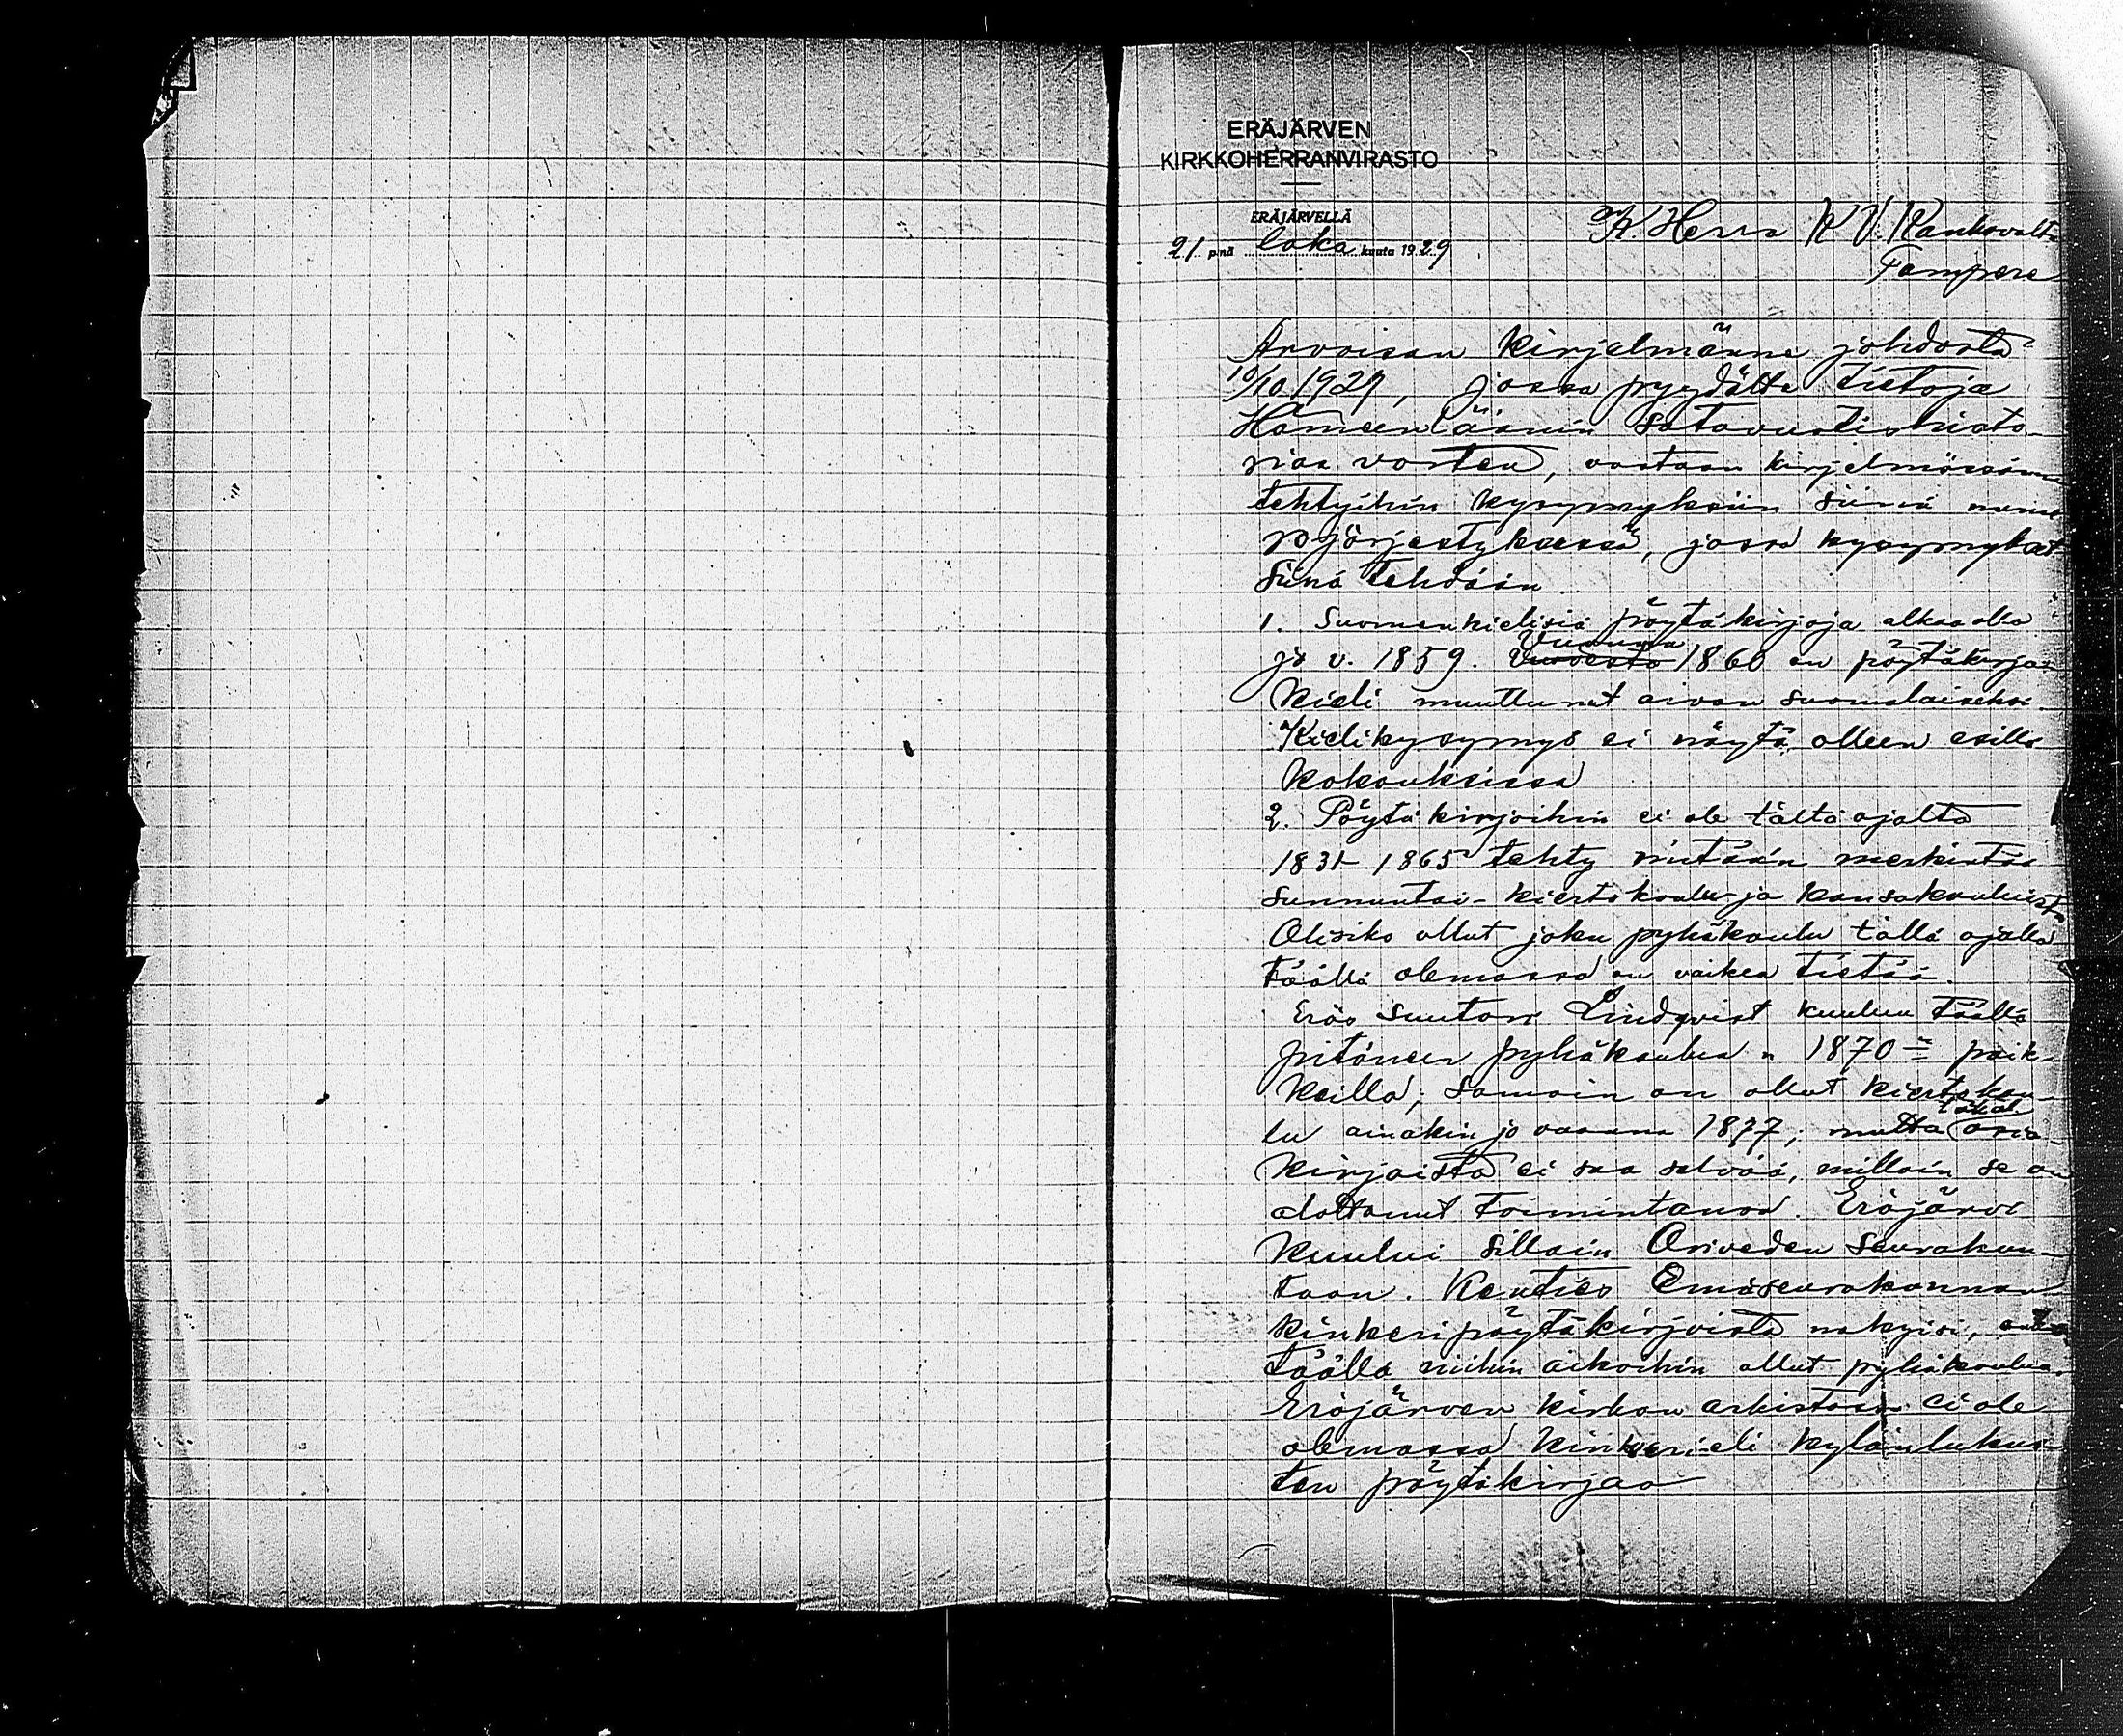 ERÄJÄRVEN
KIRKKOHERRANVIRASTO
ERÄJÄRVELLÄ
21 p:nä loka kuuta 1929
K. Herra K V. Kaukovalta
Tampere
Arvoisan kirjelmänne johdosta
10/10 1929, jossa pyydätte tietoja
Hämeenläänin satavuotishisto-
riaa varten, vastaan kirjelmässänne
tehtyihin kysymyksiin siinä nume
rojärjestyksessä, jossa kysymykset
siinä tehdään.
1. Suomenkielisiä pöytäkirjoja alkaa olla
jo v. 1859. Vuonna 1860 on pöytäkirja-
kieli muuttunut aivan suomalaiseksi.
Kielikysymys ei näytä olleen esillä
kokouksissa
2. Pöytäkirjoihin ei ole tältä ajalta
1831-1865 tehty mitään merkintää
sunnuntai- kiertokoulu- ja kansakouluista
Olisiko ollut joku pyhäkoulu tällä ajalla
täällä olemassa on vaikea tietää.
Eräs suutari Lindqvist kuuluu täällä
pitäneen pyhäkoulua n 1870 paik-
keilla; samoin on ollut kiertokou-
lu ainakin jo vuonna 1877; mutta täkäl. asia-
kirjoista ei saa selvää, milloin se on
alottanut toimintansa. Eräjärvi
kuului silloin Oriveden seurakun-
taan. Kenties Emäseurakunnan
kinkeripöytäkirjoista näkyisi, onko
täällä niihin aikoihin ollut pyhäkoulua.
Eräjärven kirkon arkistossa ei ole
olemassa kinkeri- eli kylänluku
ten pöytäkirjaa